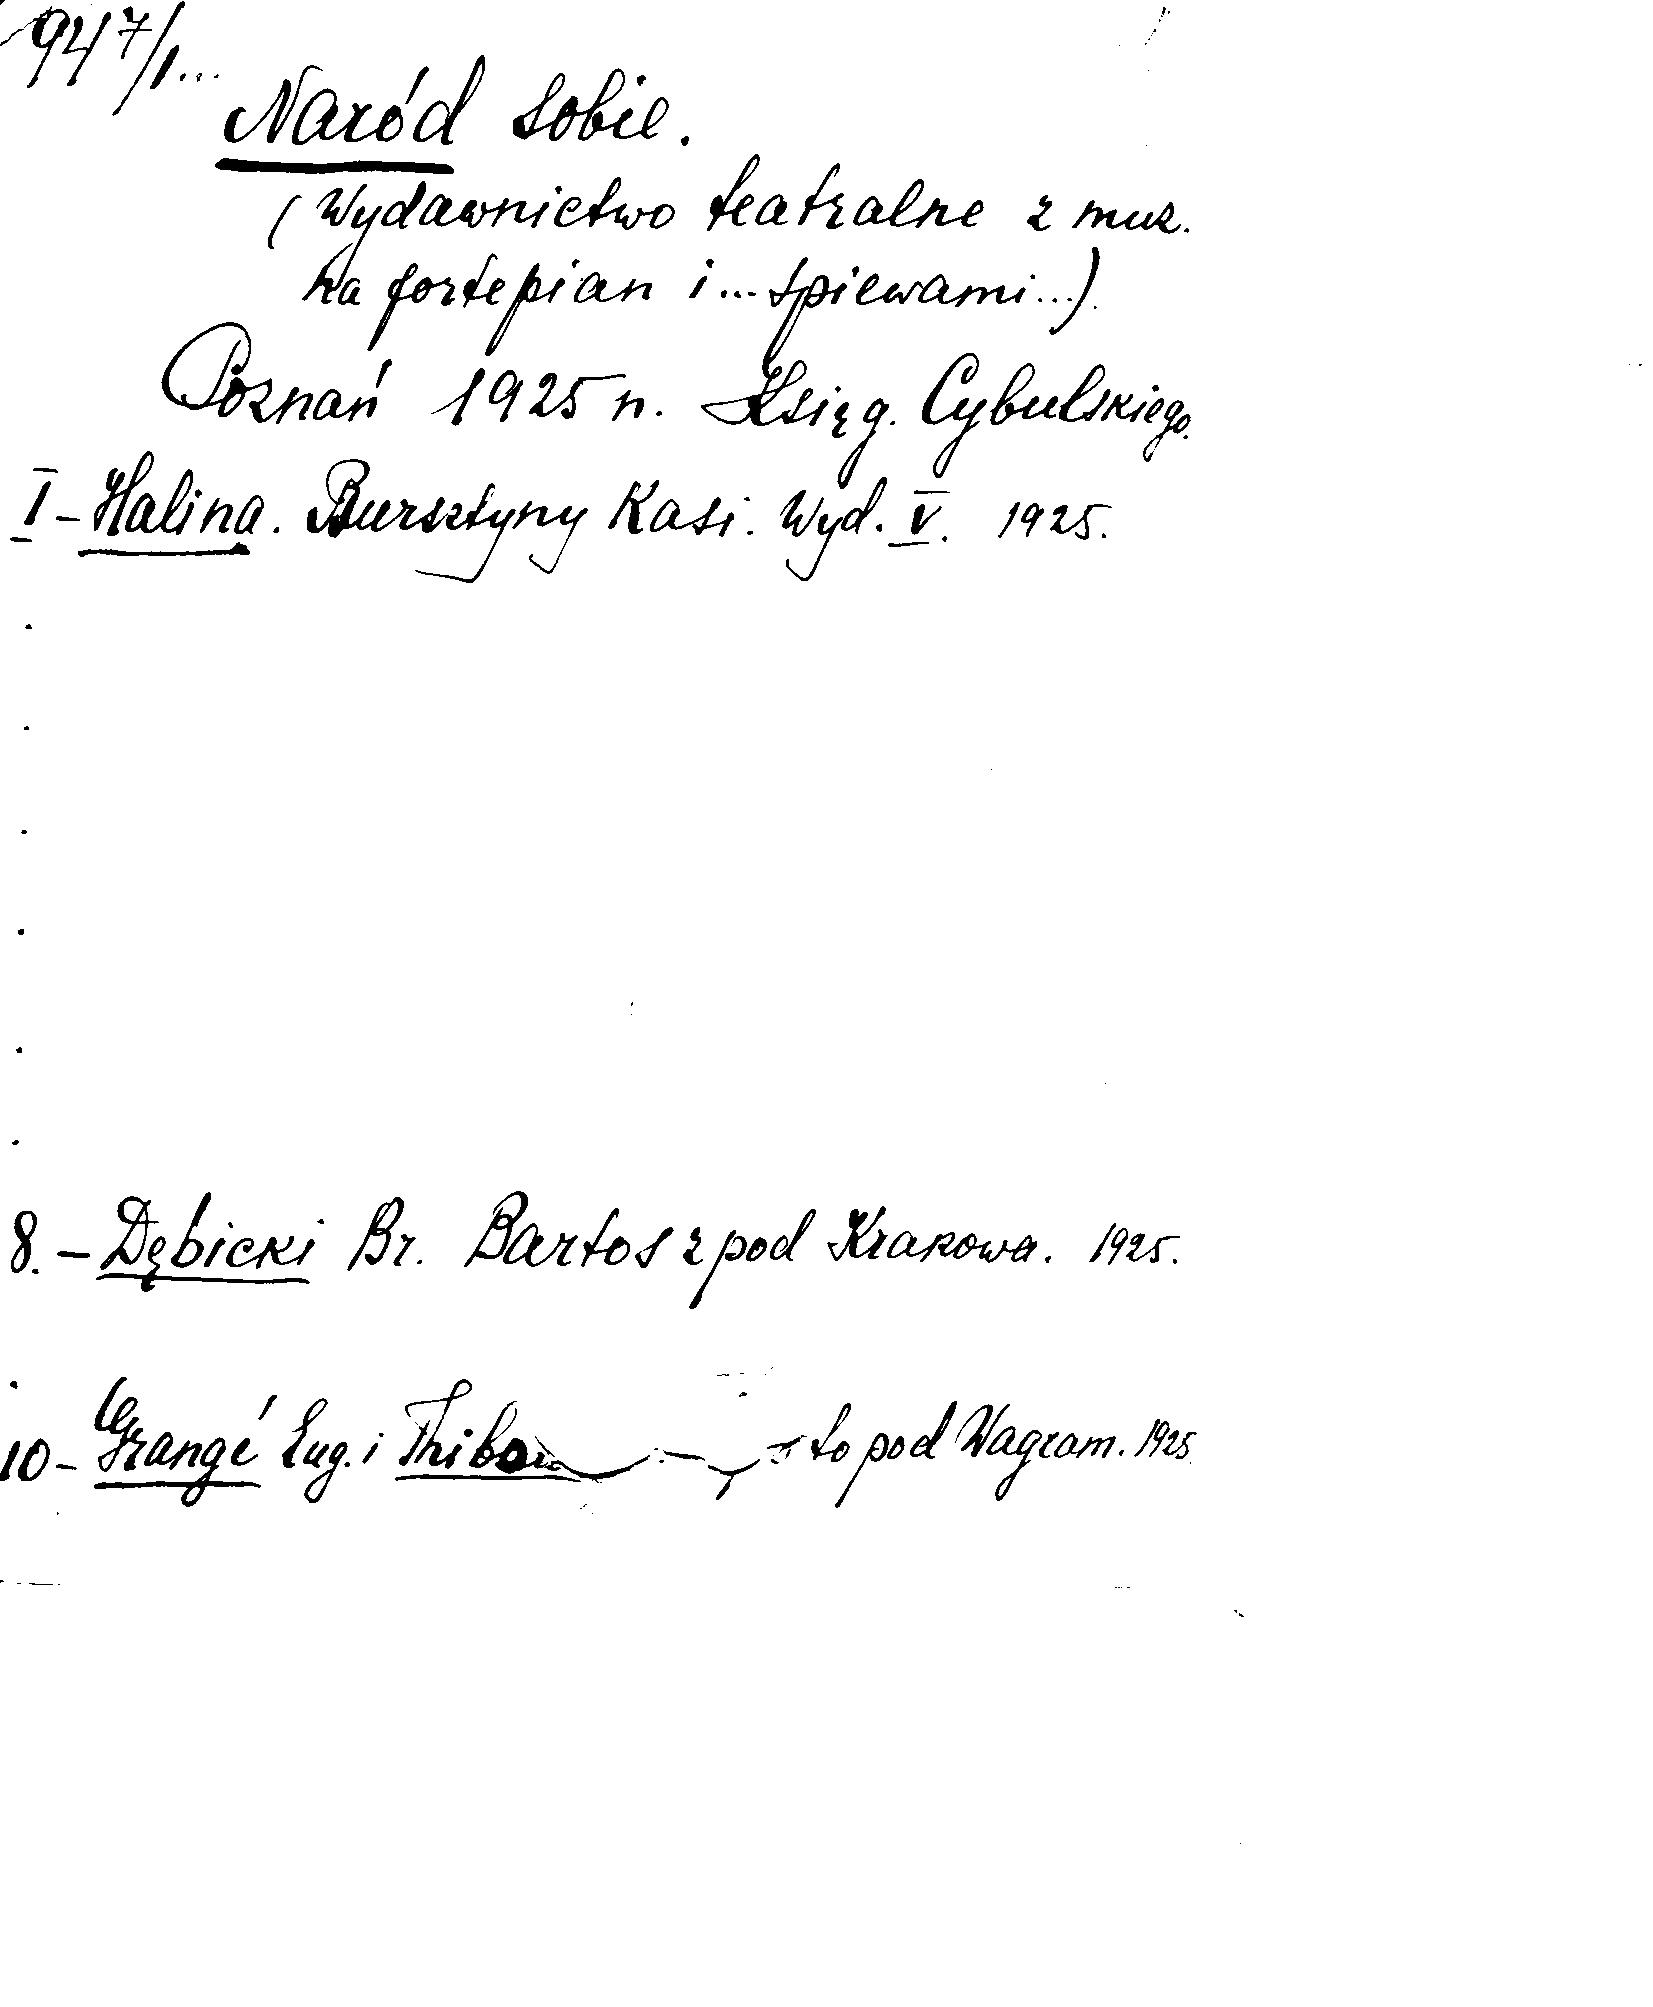 947/I...
Naród sobie.
(Wydawnictwo teatralne z muz.
na fortepian i... śpiewami...).
Poznań 1925 n. Księg. Cybulskiego.
I - Halina. Bursztyny Kasi. Wyd. V. 1925.
8. - Dębicki Br. Bartos z pod Krakowa. 1925.
10 - Grangé Eug. i to pod Wagram. 1925